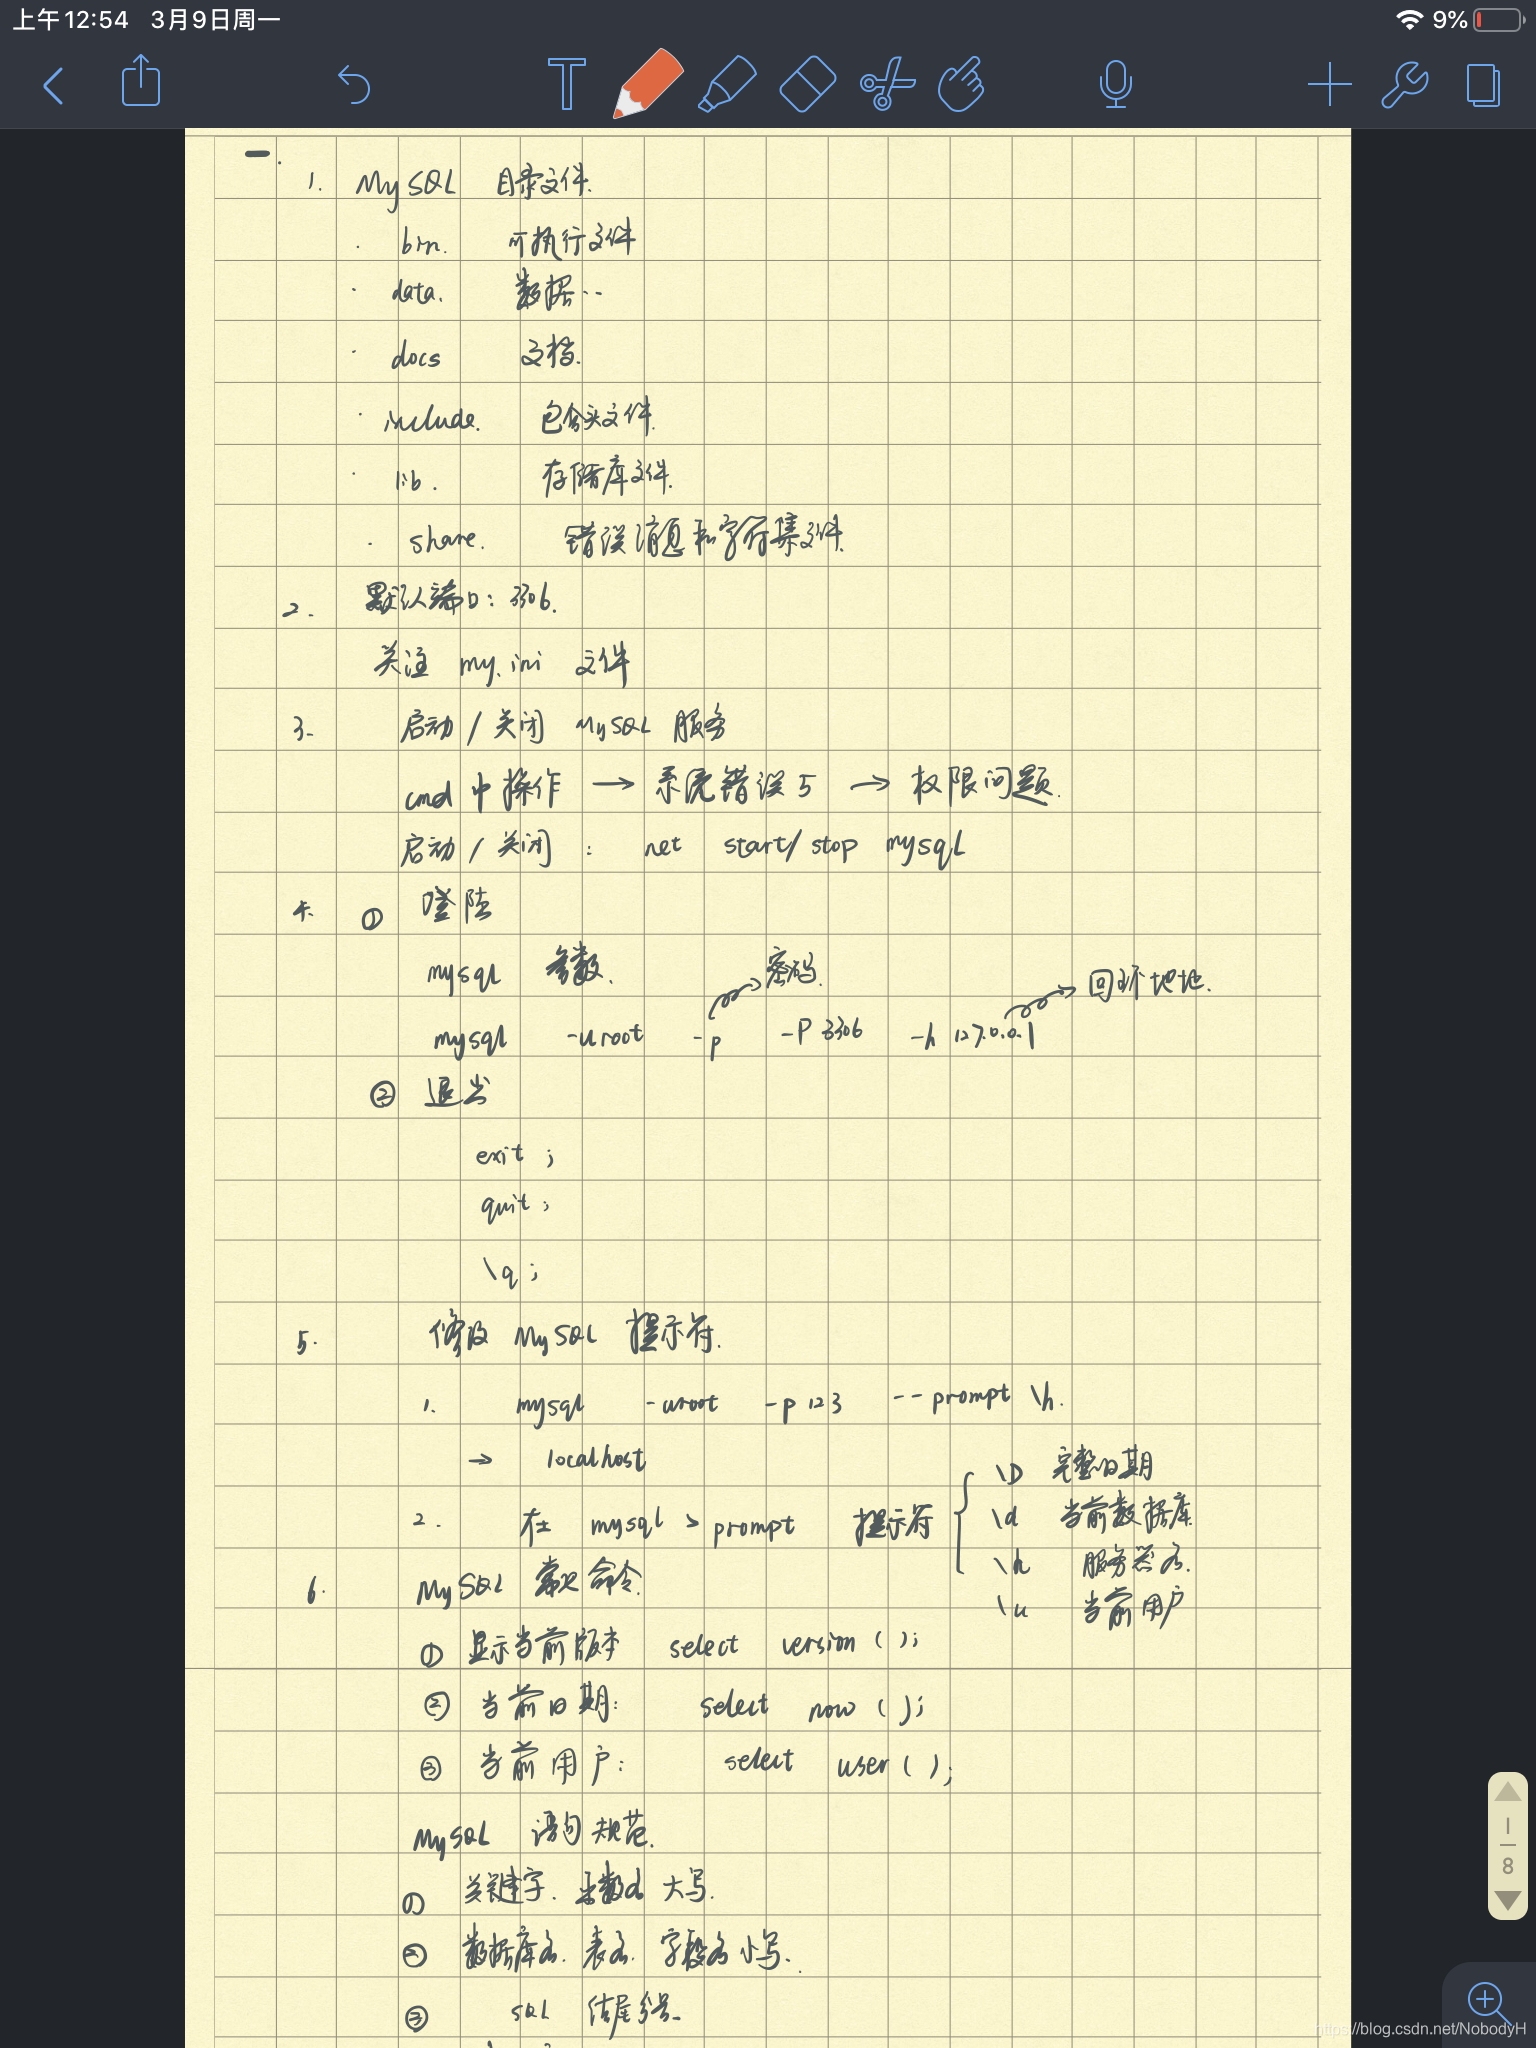 上午12:54 3月9日周一 9%
一.
1. MySQL 目录文件.
· bin. 可执行文件
· data. 数据..
· docs 文档.
· include. 包含头文件.
· lib. 存储库文件.
· share. 错误消息和字符集文件.
2. 默认端口: 3306.
关注 my.ini 文件
3. 启动/关闭 MySQL 服务
cmd 中操作 → 系统错误5 → 权限问题.
启动/关闭: net start/stop mysql
4. ① 登陆
mysql 参数. 密码. 回环地址.
mysql -uroot -p -P 3306 -h 127.0.0.1
② 退出
exit ;
quit ;
\q ;
5. 修改 MySQL 提示符.
1. mysql -uroot -p 123 --prompt \h.
→ localhost
\D 完整日期
2. 在 mysql > prompt 提示符
\d 当前数据库
\h 服务器名.
\u 当前用户
6. MySQL 常见命令.
① 显示当前版本 select version ();
② 当前日期: select now ();
③ 当前用户: select user ();
MySQL 语句规范.
① 关键字. 大写.
② 数据库名. 表名. 字段名小写.
③ SQL 结尾分号.
1
8
https://blog.csdn.net/NobodyH